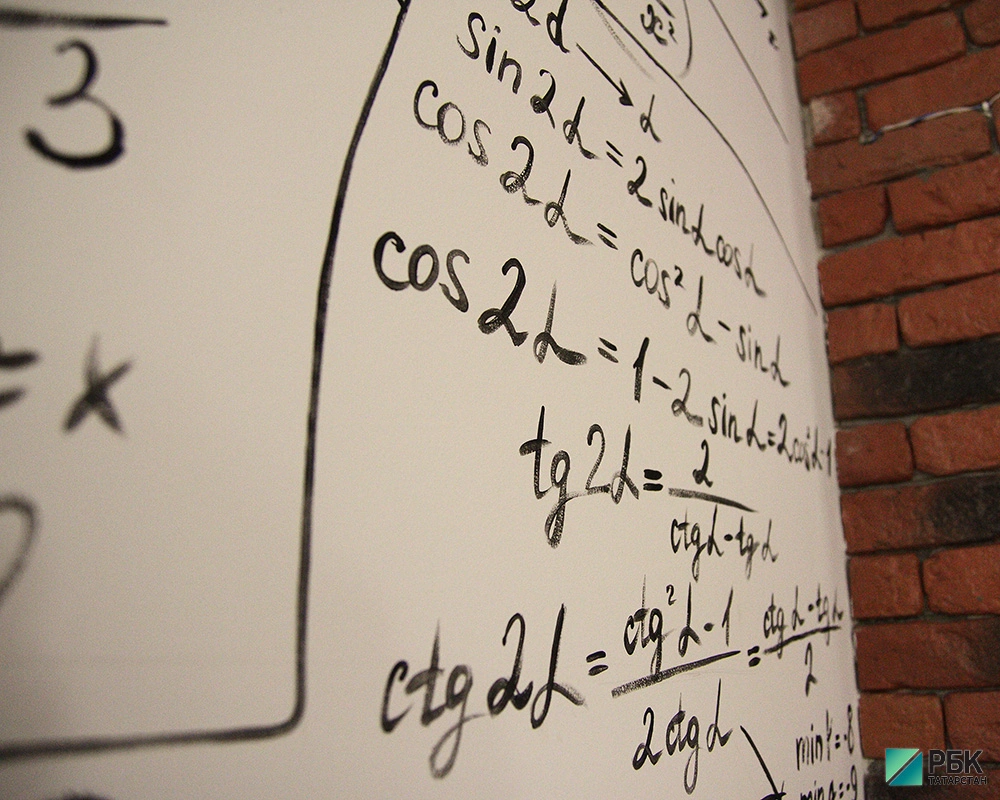 3
= x
2α → α
x²
2
sin2α = 2 sinα cosα
cos2α = cos² α - sinα
cos2α = 1 - 2 sinα = 2cos²α-1
tg2α = 2
ctgα - tgα
ctg2α = ctg²α - 1 = ctgα - tgα
2ctgα 2
min = -8
min = -9
РБК
ТАТАРСТАН